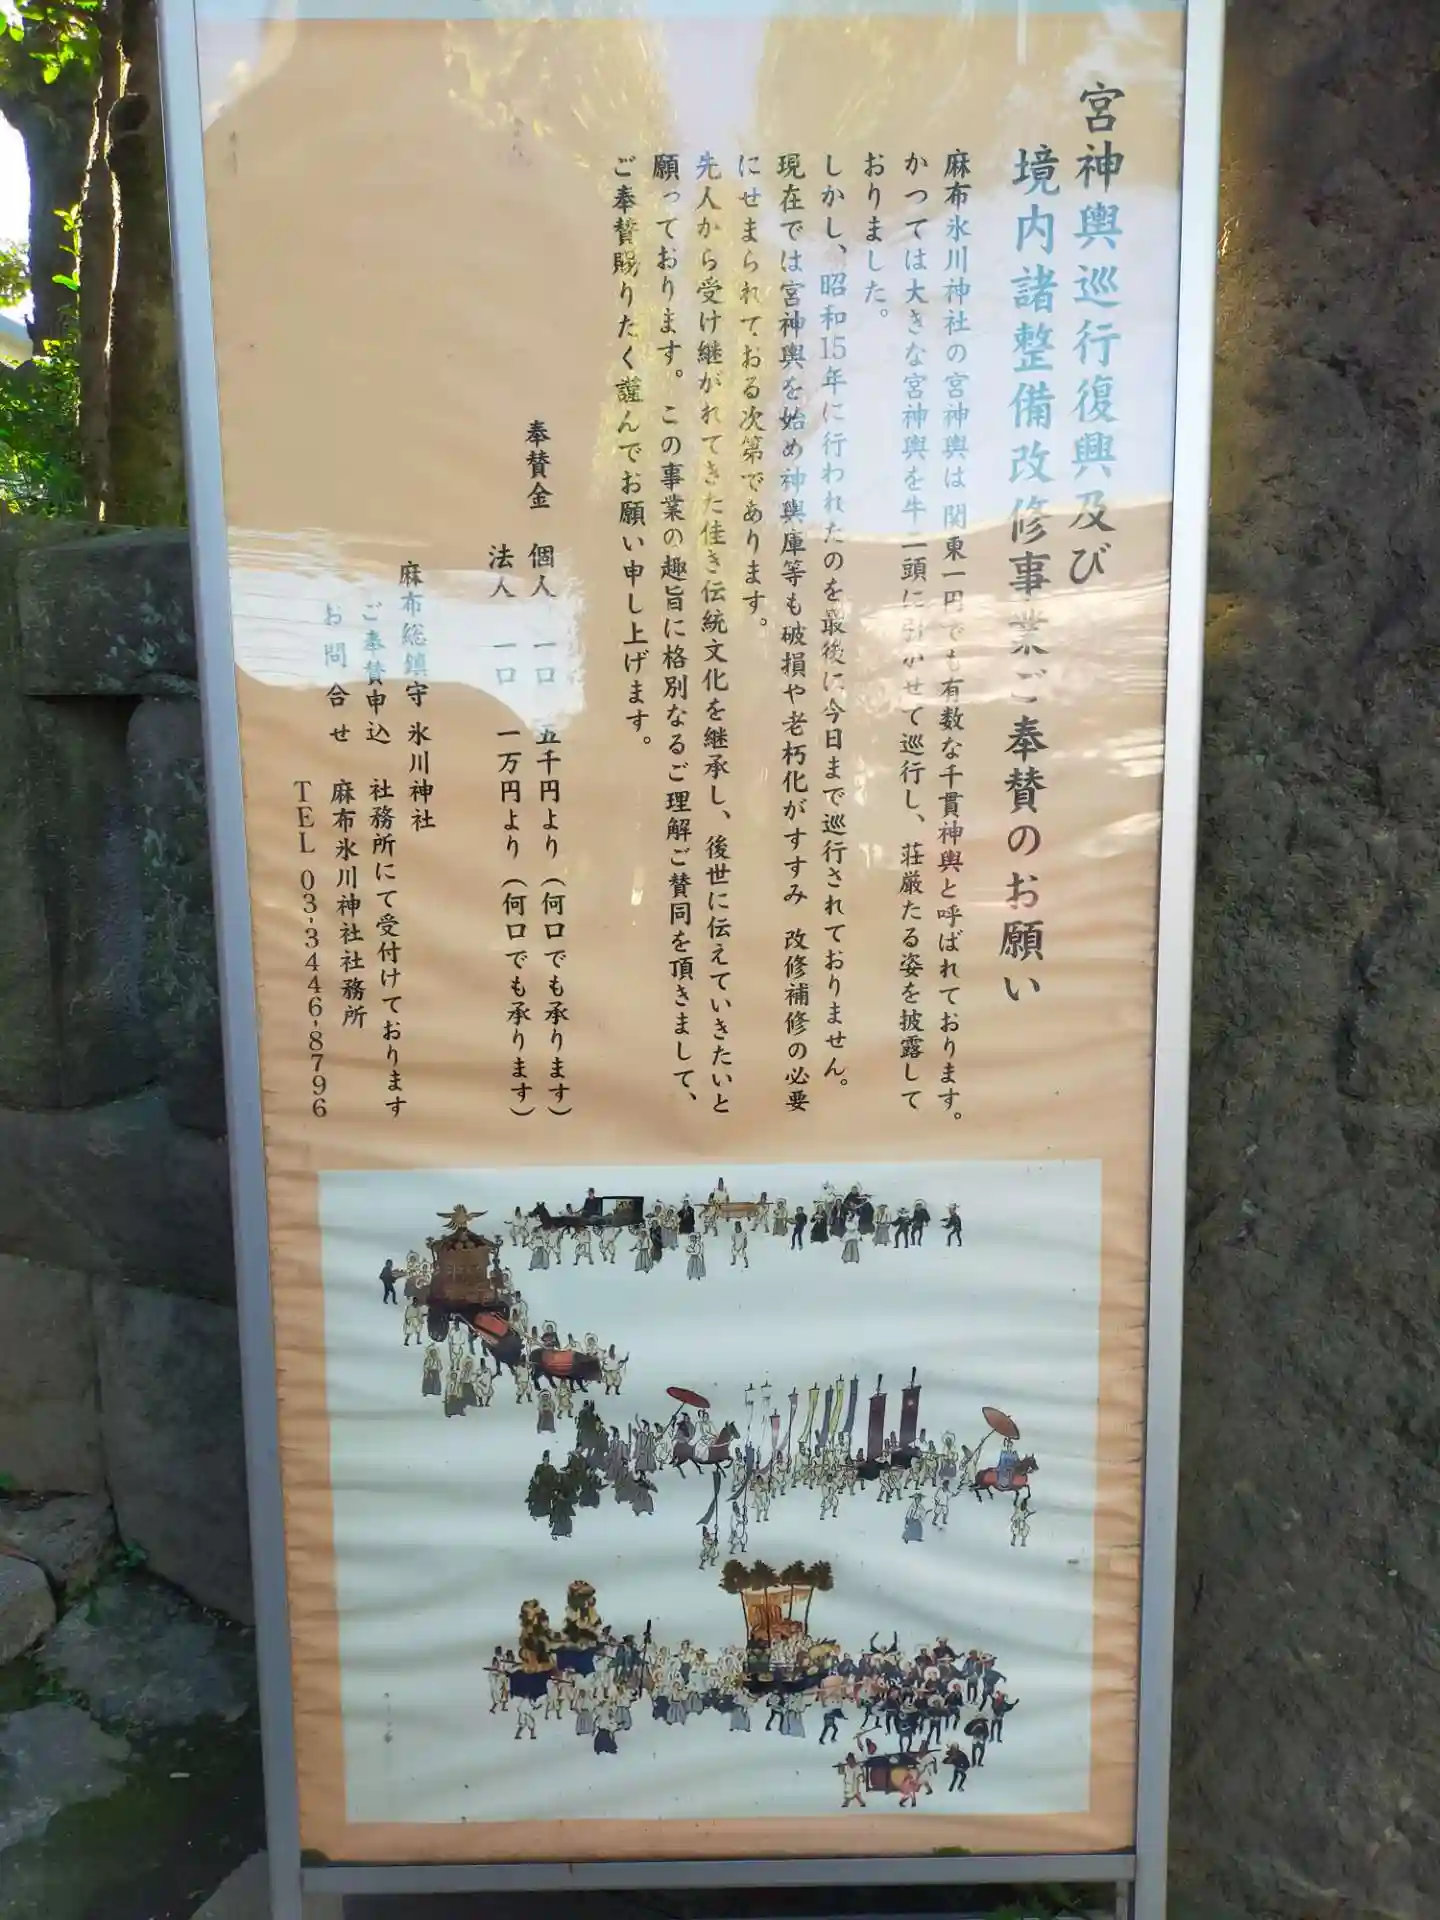 宮神輿巡行復興及び
境内諸整備改修事業ご奉賛のお願い
麻布氷川神社の宮神輿は関東一円でも有数な千貫神輿と呼ばれております。
かつては大きな宮神輿を牛二頭に引かせて巡行し、荘厳たる姿を披露して
おりました。
しかし、昭和15年に行われたのを最後に今日まで巡行されておりません。
現在では宮神輿を始め神輿庫等も破損や老朽化がすすみ 改修補修の必要
にせまられておる次第であります。
先人から受け継がれてきた佳き伝統文化を継承し、後世に伝えていきたいと
願っております。この事業の趣旨に格別なるご理解ご賛同を頂きまして、
ご奉賛賜りたく謹んでお願い申し上げます。
奉賛金 個人 一口 五千円より（何口でも承ります）
法人 一口 一万円より（何口でも承ります）
麻布総鎮守 氷川神社
ご奉賛申込 社務所にて受付けております
お問合せ 麻布氷川神社社務所
TEL 03-3446-8796